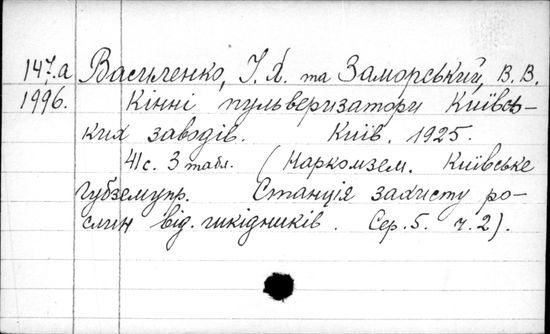 147.а Василенко, І. Х. та Заморський, В. В.
1996. Кінні пульверизатори Київсь-
ких заводів. Київ. 1925.
41 с. 3 табл. (Наркомзем. Київське
губземупр. Станція захисту ро-
слин від. шкідників. Сер. 5. ч. 2).